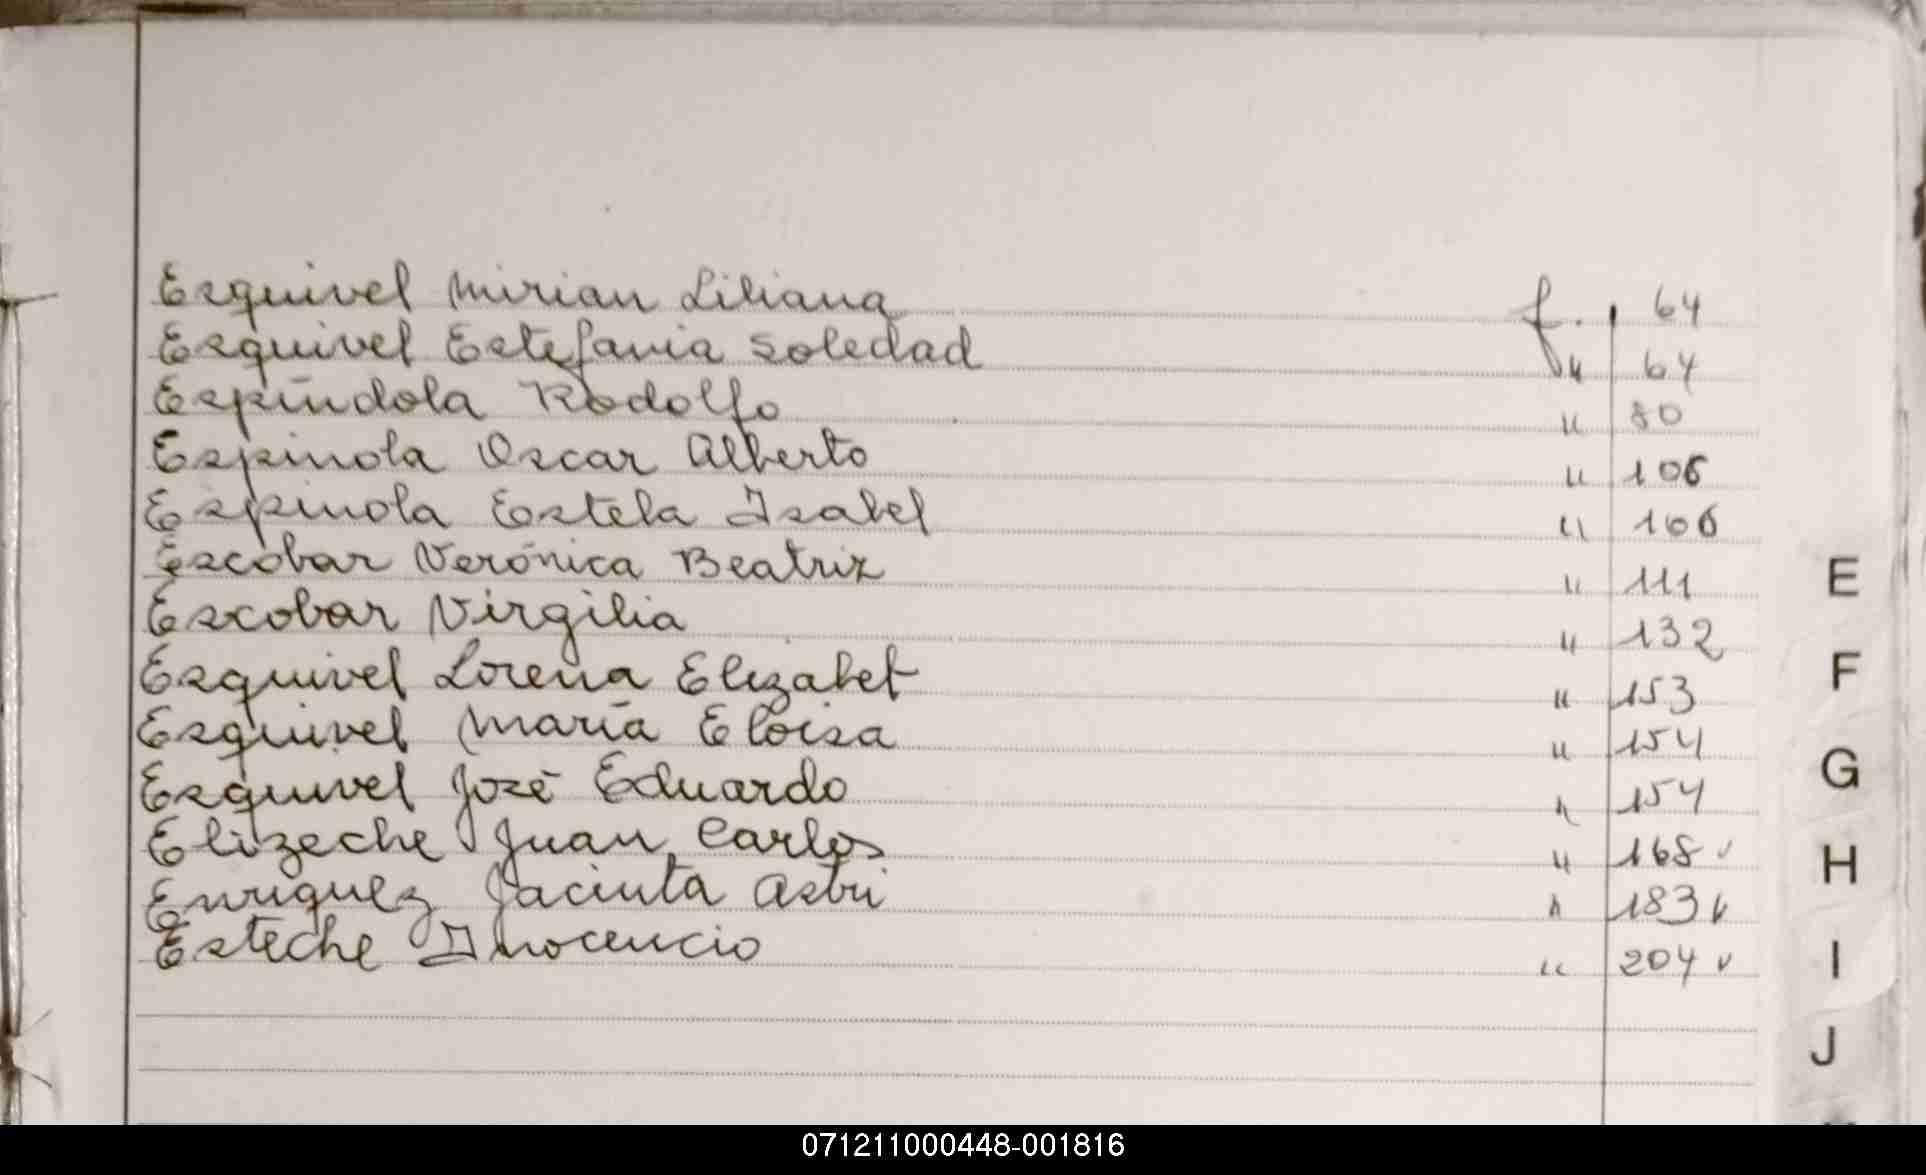 Esquivel Mirian Liliana f. 64
Esquivel Estefania Soledad " 64
Espíndola Rodolfo " 80
Espinola Oscar Alberto " 106
Espinola Estela Isabel " 106
Escobar Verónica Beatriz " 111
Escobar Virgilia " 132
Esquivel Lorena Elizabet " 153
Esquivel María Eloisa " 154
Esquivel José Eduardo " 154
Elizeche Juan Carlos " 168 v
Enriquez Jacinta Astri " 183 v
Esteche Inocencio " 204 v
E
F
G
H
I
J
071211000448-001816